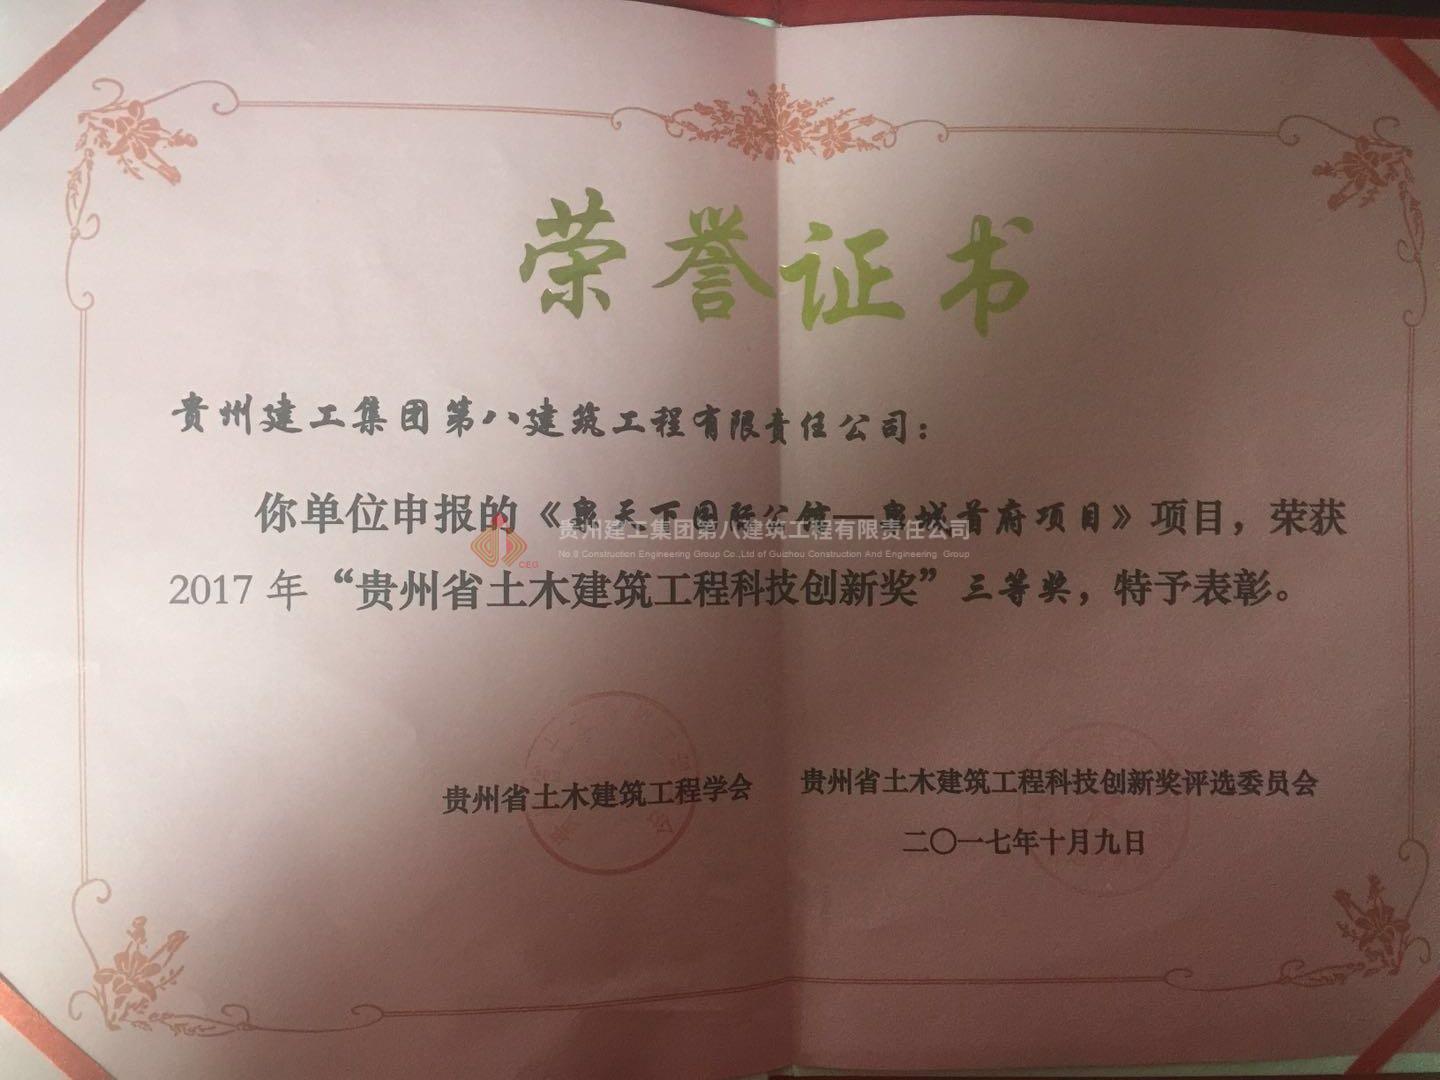 荣誉证书
贵州建工集团第八建筑工程有限责任公司：
你单位申报的《天下国际公馆—城首府项目》项目，荣获
贵州建工集团第八建筑工程有限责任公司
No.8 Construction Engineering Group Co.,Ltd of Guizhou Construction And Engineering Group
CEG
2017 年“贵州省土木建筑工程科技创新奖”三等奖，特予表彰。
贵州省土木建筑工程学会
贵州省土木建筑工程科技创新奖评选委员会
二〇一七年十月九日